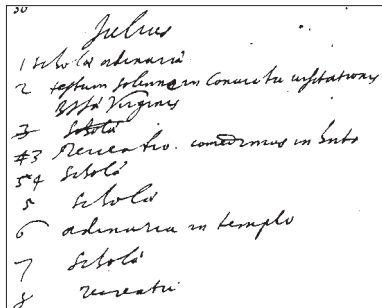 30
Julius
1 schola ordinaria
2 festum solenne in Conventu visitationis
Bssa Virginis
3 Schola
#3 Recreatio. comedimus in horto
54 Schola
5 schola
6 ordinaria in templo
7 Schola
8 recreatio